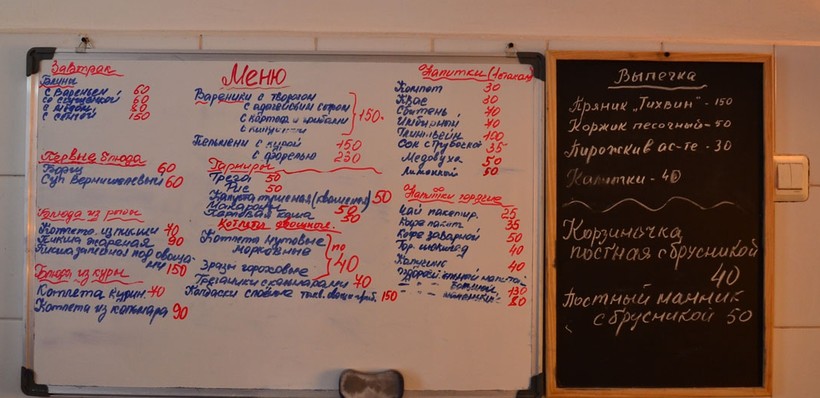 Завтрак
Блины
с вареньем 60
со сгущенкой 60
с мёдом 80
с семгой 150
Первые блюда
Борщ 60
Суп вермишелевый 60
Блюда из рыбы
Котлета из пикши 70
Пикша жареная 90
Пикша запечён. под овоща-
ми 150
Блюда из куры
Котлета курин. 70
Котлета из кальмара 90
Меню
Вареники с творогом
с адыгейским сыром
с картоф и грибами
с капустой
150
Пельмени с курой 150
с форелью 230
Гарниры
Греча 50
Рис 50
Капуста тушеная (квашеная) 50
Макароны 50
Картовая каша 50
Котлеты овощные
Котлета нутовые
морковные
Зразы гороховые
по 40
с кальмарами 70
Колбаски 150
Напитки (1 стакан)
Компот 30
Квас 30
Сбитень 40
Имбирный 40
Глинтвейн 100
Сок с трубоской 35
Медовуха 50
Лимонный 50
Напитки горячие
Чай пакетир. 25
Кофе пакет 35
Кофе заварной 50
Гор. шоколад 40
Капустник 40
большой 130
маленький 80
Выпечка
Пряник „Тихвин" - 150
Коржик песочный - 50
Пирожки в ас-те - 30
Калитки - 40
Корзиночка
постная с брусникой
40
Постный манник
с брусникой 50